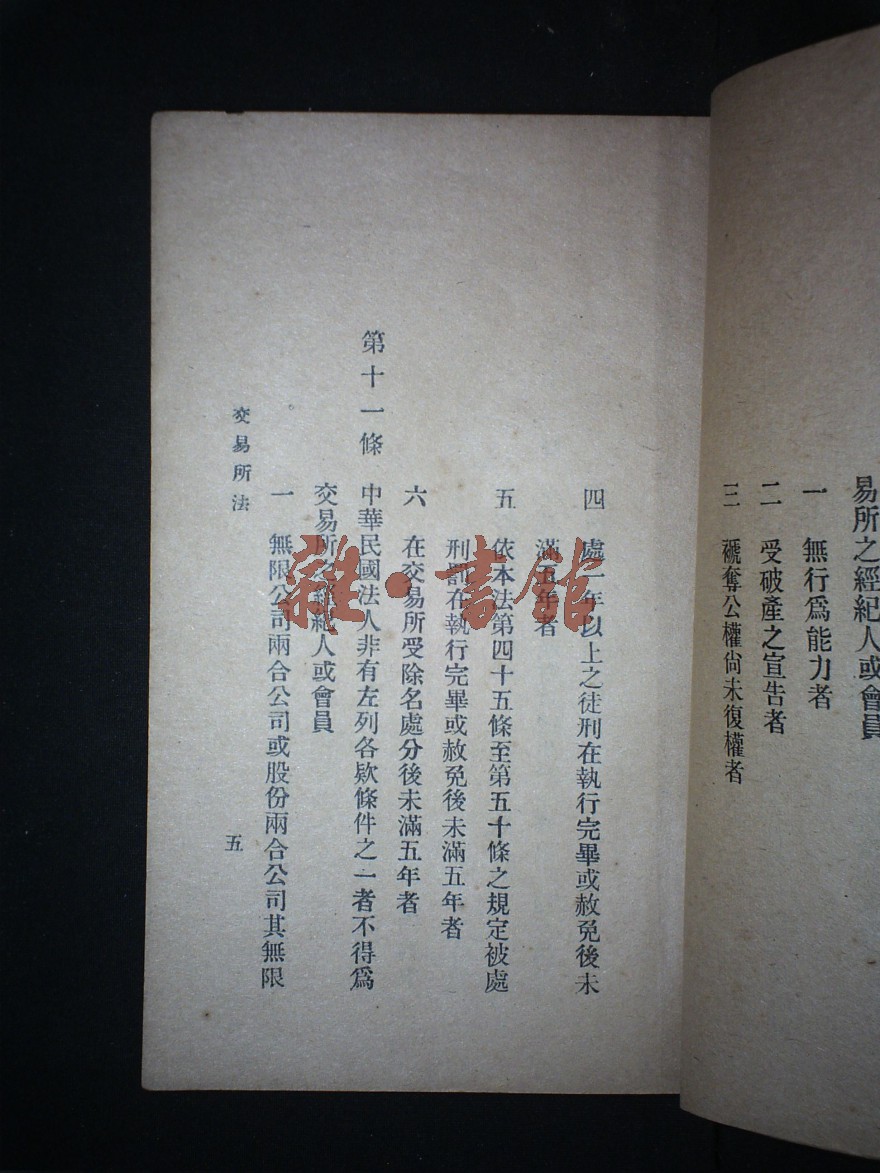 易所之經紀人或會員
一 無行爲能力者
二 受破產之宣告者
三 褫奪公權尙未復權者
四 處一年以上之徒刑在執行完畢或赦免後未
滿五年者
五 依本法第四十五條至第五十條之規定被處
刑罰在執行完畢或赦免後未滿五年者
六 在交易所受除名處分後未滿五年者
第十一條 中華民國法人非有左列各欵條件之一者不得爲
交易所之經紀人或會員
一 無限公司兩合公司或股份兩合公司其無限
交易所法
五
雜·書館